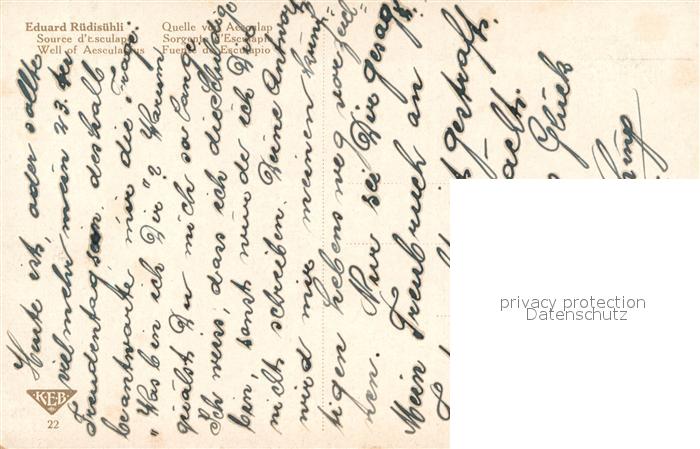 Eduard Rüdisühli
Quelle von Aesculap
Source d'Esculape
Sorgente d'Esculapio
Well of Aesculapius
Fuente de Esculapio
Heute ist, oder sollte
vielmehr mein 23. ter
Freudentag sein. deshalb
beantworte mir die Frage:
"Was bin ich Dir"? Warum
quälst Du mich so lange
Ich weiss, dass ich die Schuldige
bin, sonst würde ich Dir
nicht schreiben. Deine Antwort
wird mir meinen künf=
tigen Lebensweg vorzeich=
nen. Nur sei Dir gesagt:
Mein Treubruch an
gestraft.
Glück
K·E·B
22
privacy protection
Datenschutz